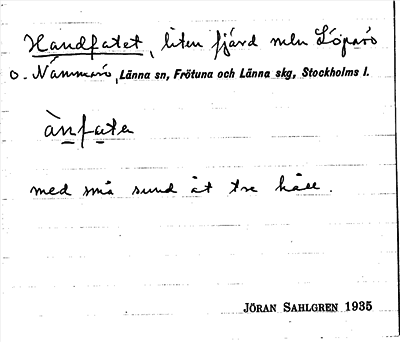 Handfatet, liten fjärd mln Löparö
o. Nämmarö, Länna sn, Frötuna och Länna skg, Stockholms l.
ànfatən
med små sund åt tre håll.
JÖRAN SAHLGREN 1935